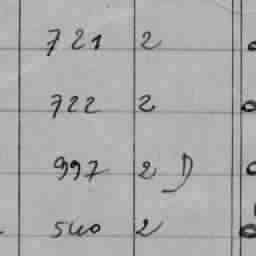 721 2
722 2
997 2 D
540 2